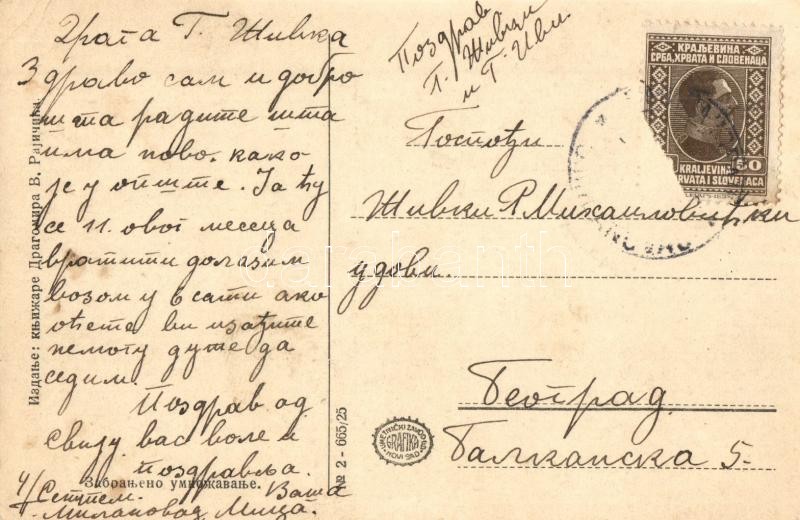 Драга Г. Живка
Здраво сам и добро
шта радите шта
има ново. како
је у опште. Ја ћу
се 11. овог месеца
вратити долазим
возом у 6 сати ако
оћете ви изађите
немогу дуже да
седим.
Поздрав од
свију вас воле и
поздравља.
4/ Септем. Ваша
Милановац Мица.
Поздрав
Г. Живки
и Г. Иви.
Госпођи
Живки Р. Михаиловићки
удови.
Београд
Балканска 5-
КРАЉЕВИНА
СРБА, ХРВАТА И СЛОВЕНАЦА
50
KRALJEVINA
RVATA I SLOVENACA
Издање: књижаре Драгомира В. Рајичића
Забрањено умножавање.
№ 2 - 665/25
GRAFIKA
NOVI SAD
darabanth